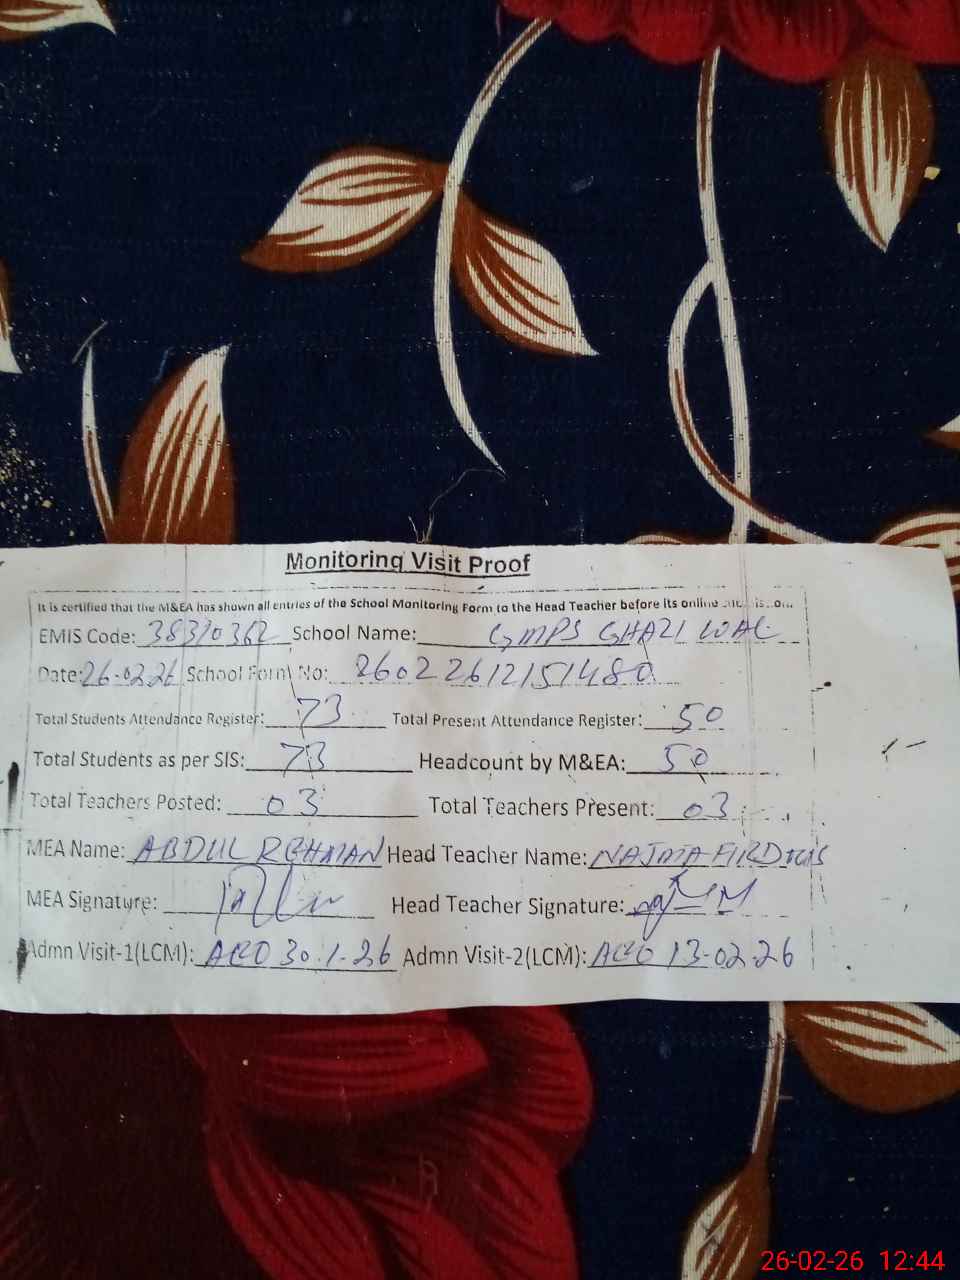 Monitoring Visit Proof
It is certified that the M&EA has shown all entries of the School Monitoring Form to the Head Teacher before its online
EMIS Code: 38310362 School Name: GMPS GHAZI WAL
Date: 26-02-26 School Form No: 26022612151480
Total Students Attendance Register: 73 Total Present Attendance Register: 50
Total Students as per SIS: 73 Headcount by M&EA: 50
Total Teachers Posted: 03 Total Teachers Present: 03
MEA Name: ABDUL REHMAN Head Teacher Name: NAJMA FIRDOUS
MEA Signature: Head Teacher Signature:
Admn Visit-1(LCM): AEO 30-1-26 Admn Visit-2(LCM): AEO 13-02-26
26-02-26 12:44